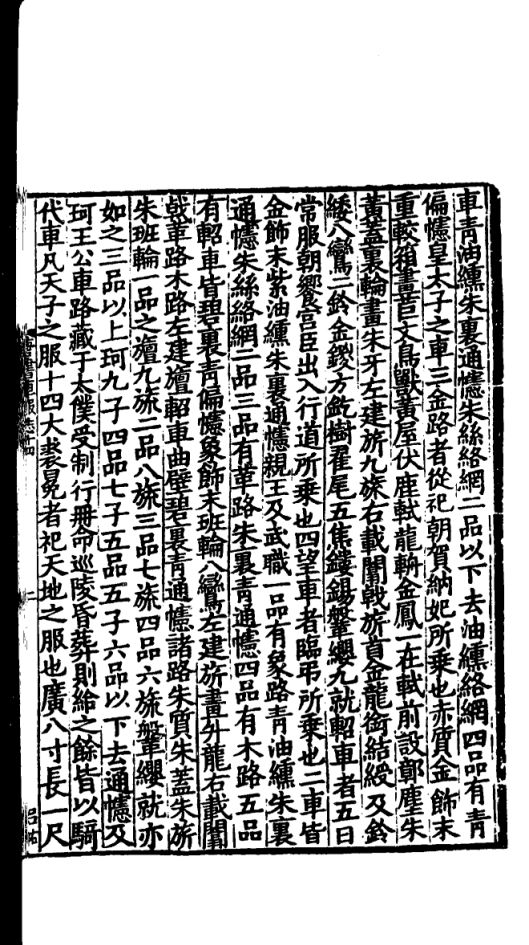 車青油纁朱裏通幰朱絲絡網二品以下去油纁絡網四品有青
偏幰皇太子之車三金路者從祀朝賀納妃所乘也赤質金飾末
重較箱畫苣文鳥獸黃屋伏鹿軾龍輈金鳳一在軾前設鄣塵朱
黃蓋裏輪畫朱牙左建旂九旒右載闟戟旂首金龍銜結綬及鈴
緌八鸞二鈴金鍐方釳樹翟尾五焦鏤鍚鞶纓九就軺車者五日
常服朝饗宮臣出入行道所乘也四望車者臨弔所乘也二車皆
金飾末紫油纁朱裏通幰親王及武職一品有象路青油纁朱裏
通幰朱絲絡網二品三品有革路朱裏青通幰四品有木路五品
有軺車皆碧裏青偏幰象飾末班輪八鸞左建旂畫升龍右載闟
戟革路木路左建旜軺車曲壁碧裏青通幰諸路朱質朱蓋朱旂
朱班輪一品之旜九旒二品八旒三品七旒四品六旒鞶纓就亦
如之三品以上珂九子四品七子五品五子六品以下去通幰及
珂王公車路藏于太僕受制行冊命巡陵昏葬則給之餘皆以騎
代車凡天子之服十四大裘冕者祀天地之服也廣八寸長一尺
唐書車服志十四
二
呂祐